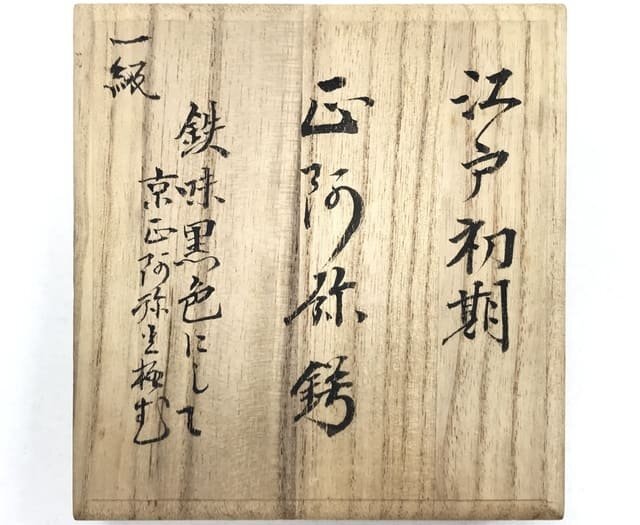 江戸初期
正阿弥鍔
鉄味黒色にして
京正阿弥と極む
一級